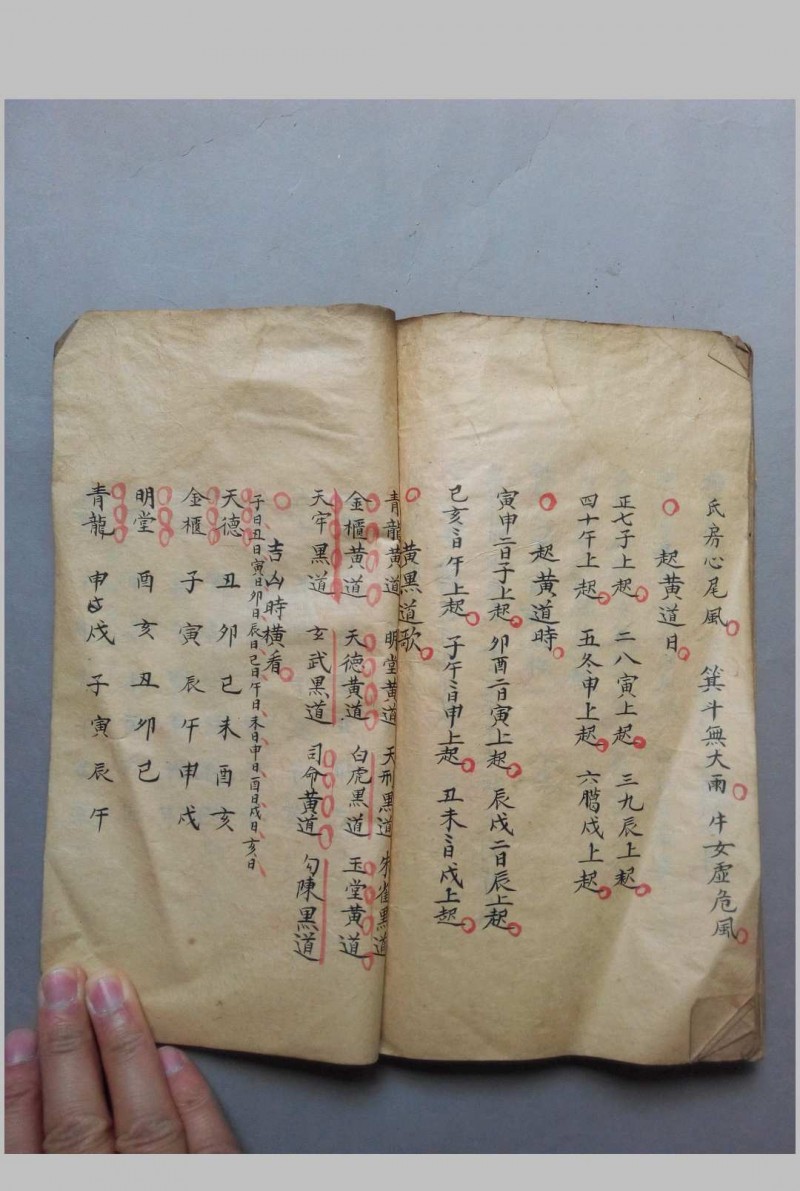 氐房心尾風 箕斗無大雨 牛女虛危風
起黄道日
正七子上起 二八寅上起 三九辰上起
四十午上起 五冬申上起 六臘戌上起
起黄道時
寅申二日子上起 卯酉二日寅上起 辰戌二日辰上起
巳亥二日午上起 子午二日申上起 丑未二日戌上起
黄黑道歌
青龍黄道 明堂黄道 天刑黑道 朱雀黑道
金櫃黄道 天德黄道 白虎黑道 玉堂黄道
天牢黑道 玄武黑道 司命黄道 勾陳黑道
吉凶時橫看
子日丑日寅日卯日辰日巳日午日未日申日酉日戌日亥日
天德 丑 卯 巳 未 酉 亥
金櫃 子 寅 辰 午 申 戌
明堂 酉 亥 丑 卯 巳
青龍 申 戌 子 寅 辰 午